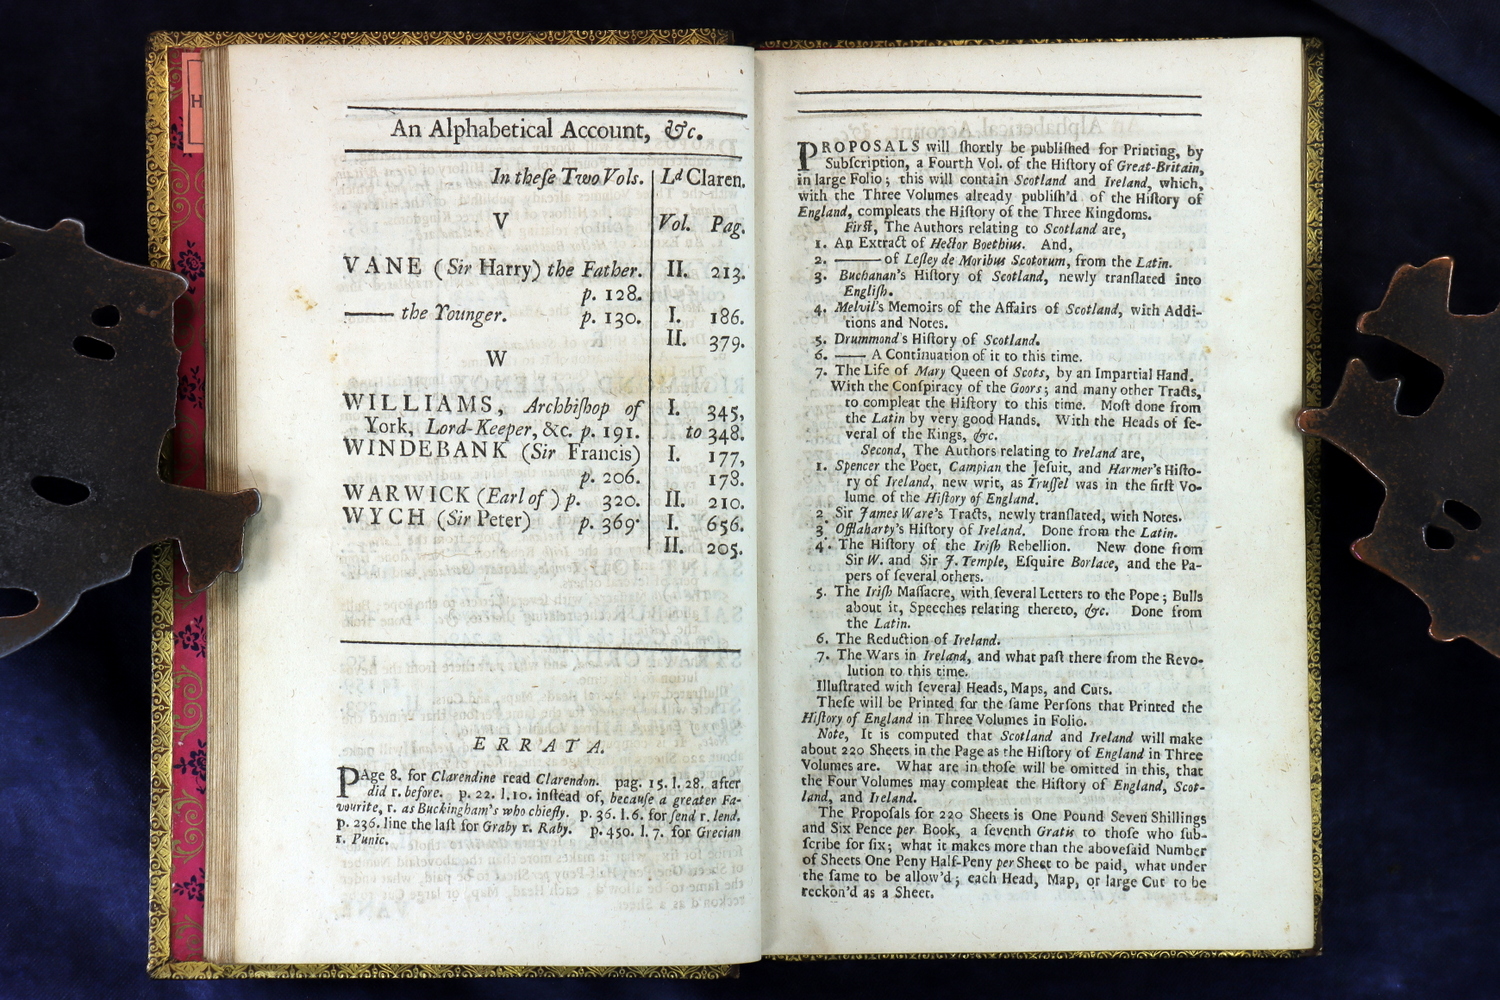 H
An Alphabetical Account, &c.
In theſe Two Vols. Ld Claren.
V Vol. Pag.
VANE (Sir Harry) the Father. II. 213.
p. 128.
—— the Younger. p. 130. I. 186.
II. 379.
W
WILLIAMS, Archbiſhop of I. 345,
York, Lord-Keeper, &c. p. 191. to 348.
WINDEBANK (Sir Francis) I. 177,
p. 206. 178.
WARWICK (Earl of) p. 320. II. 210.
WYCH (Sir Peter) p. 369. I. 656.
II. 205.
ERRATA.
PAge 8. for Clarendine read Clarendon. pag. 15. l. 28. after
did r. before. p. 22. l. 10. inſtead of, becauſe a greater Fa-
vourite, r. as Buckingham's who chiefly. p. 36. l. 6. for ſend r. lend.
p. 236. line the laſt for Graby r. Raby. p. 450. l. 7. for Grecian
r. Punic.
PROPOSALS will ſhortly be publiſhed for Printing, by
Subſcription, a Fourth Vol. of the Hiſtory of Great-Britain,
in large Folio; this will contain Scotland and Ireland, which,
with the Three Volumes already publiſh'd of the Hiſtory of
England, compleats the Hiſtory of the Three Kingdoms.
Firſt, The Authors relating to Scotland are,
1. An Extract of Hector Boethius. And,
2. —— of Leſley de Moribus Scotorum, from the Latin.
3. Buchanan's Hiſtory of Scotland, newly tranſlated into
Engliſh.
4. Melvil's Memoirs of the Affairs of Scotland, with Addi-
tions and Notes.
5. Drummond's Hiſtory of Scotland.
6. —— A Continuation of it to this time.
7. The Life of Mary Queen of Scots, by an Impartial Hand.
With the Conſpiracy of the Goors; and many other Tracts,
to compleat the Hiſtory to this time. Moſt done from
the Latin by very good Hands. With the Heads of ſe-
veral of the Kings, &c.
Second, The Authors relating to Ireland are,
1. Spencer the Poet, Campian the Jeſuit, and Harmer's Hiſto-
ry of Ireland, new writ, as Truſſel was in the firſt Vo-
lume of the Hiſtory of England.
2. Sir James Ware's Tracts, newly tranſlated, with Notes.
3. Offlaharty's Hiſtory of Ireland. Done from the Latin.
4. The Hiſtory of the Iriſh Rebellion. New done from
Sir W. and Sir J. Temple, Eſquire Borlace, and the Pa-
pers of ſeveral others.
5. The Iriſh Maſſacre, with ſeveral Letters to the Pope; Bulls
about it, Speeches relating thereto, &c. Done from
the Latin.
6. The Reduction of Ireland.
7. The Wars in Ireland, and what paſt there from the Revo-
lution to this time.
Illuſtrated with ſeveral Heads, Maps, and Cuts.
Theſe will be Printed for the ſame Perſons that Printed the
Hiſtory of England in Three Volumes in Folio.
Note, It is computed that Scotland and Ireland will make
about 220 Sheets in the Page as the Hiſtory of England in Three
Volumes are. What are in thoſe will be omitted in this, that
the Four Volumes may compleat the Hiſtory of England, Scot-
land, and Ireland.
The Propoſals for 220 Sheets is One Pound Seven Shillings
and Six Pence per Book, a ſeventh Gratis to thoſe who ſub-
ſcribe for ſix; what it makes more than the aboveſaid Number
of Sheets One Peny Half-Peny per Sheet to be paid, what under
the ſame to be allow'd; each Head, Map, or large Cut to be
reckon'd as a Sheet.